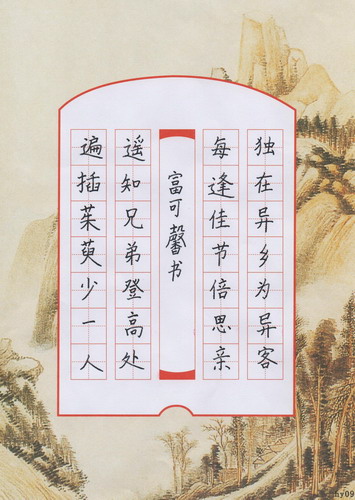 独在异乡为异客
每逢佳节倍思亲
富可馨书
遥知兄弟登高处
遍插茱萸少一人